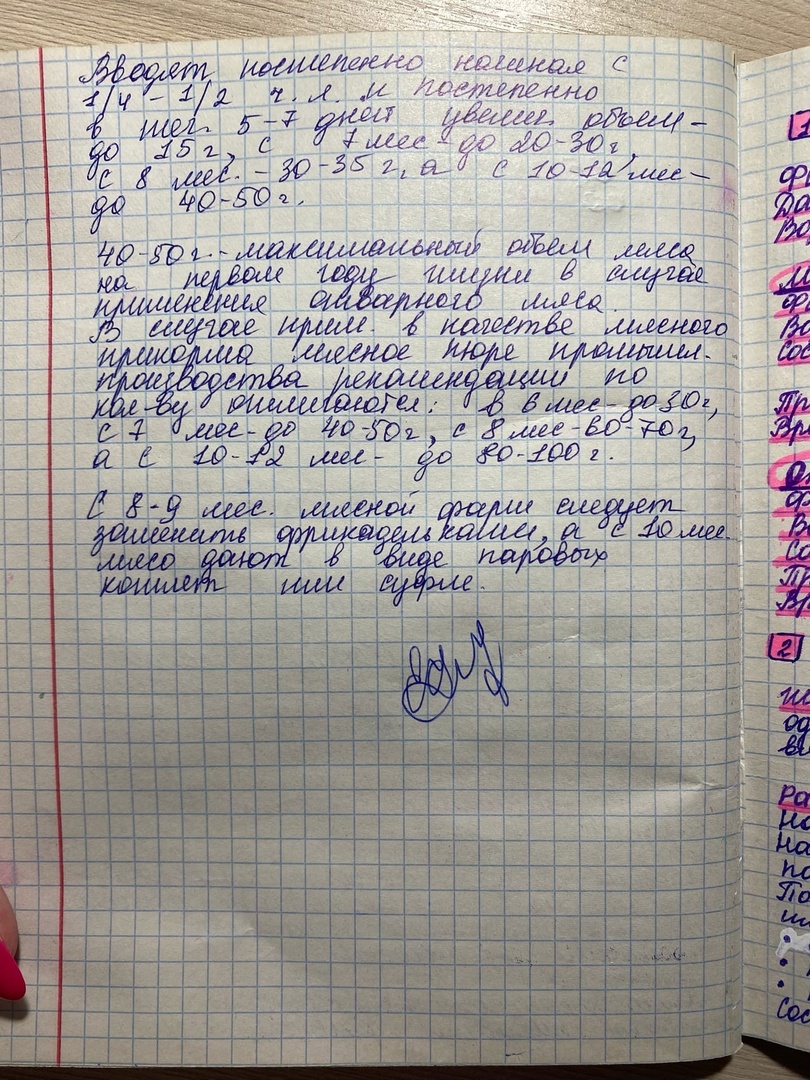 Вводят постепенно начиная с
1/4 - 1/2 ч.л. и постепенно
в теч. 5-7 дней увелич. объем -
до 15г, с 7 мес - до 20-30г,
с 8 мес. - 30-35 г, а с 10-12 мес -
до 40-50г.
40-50г. - максимальный объем мяса
на первом году жизни в случае
применения отварного мяса.
В случае прим. в качестве мясного
прикорма мясное пюре промышл.
производства рекомендации по
кол-ву отличаются: в 6 мес - до 30г,
с 7 мес - до 40-50г, с 8 мес - 60-70г,
а с 10-12 мес - до 80-100г.
С 8-9 мес. мясной фарш следует
заменить фрикадельками, а с 10 мес
мясо дают в виде паровых
котлет или суфле.
1
Да
Во
Во
Со
Пр
Вр
В
Со
Пр
Вр
2
од
Ра
На
На
по
По
Сос